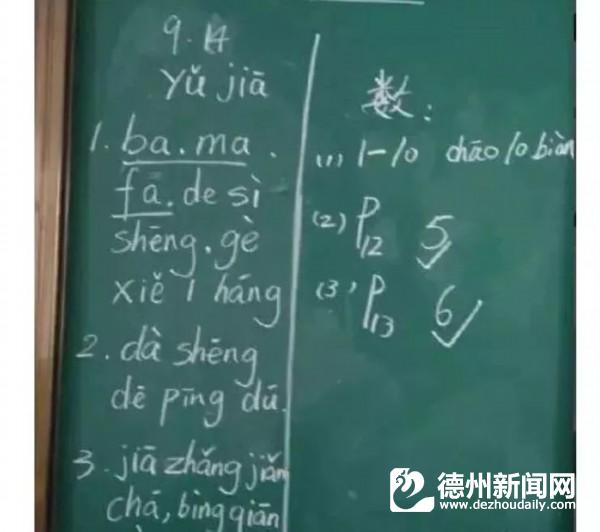 9.14
yǔ jiā
1. ba. ma.
fā. de sì
shēng. gè
xiě 1 háng
2. dà shēng
dē pīng dú.
3. jiā zhǎng jiǎn
chá, bìng qiān
数:
(1) 1-10 chāo 10 biàn
(2) P12 5
(3) P13 6
德州新闻网
www.dezhoudaily.com